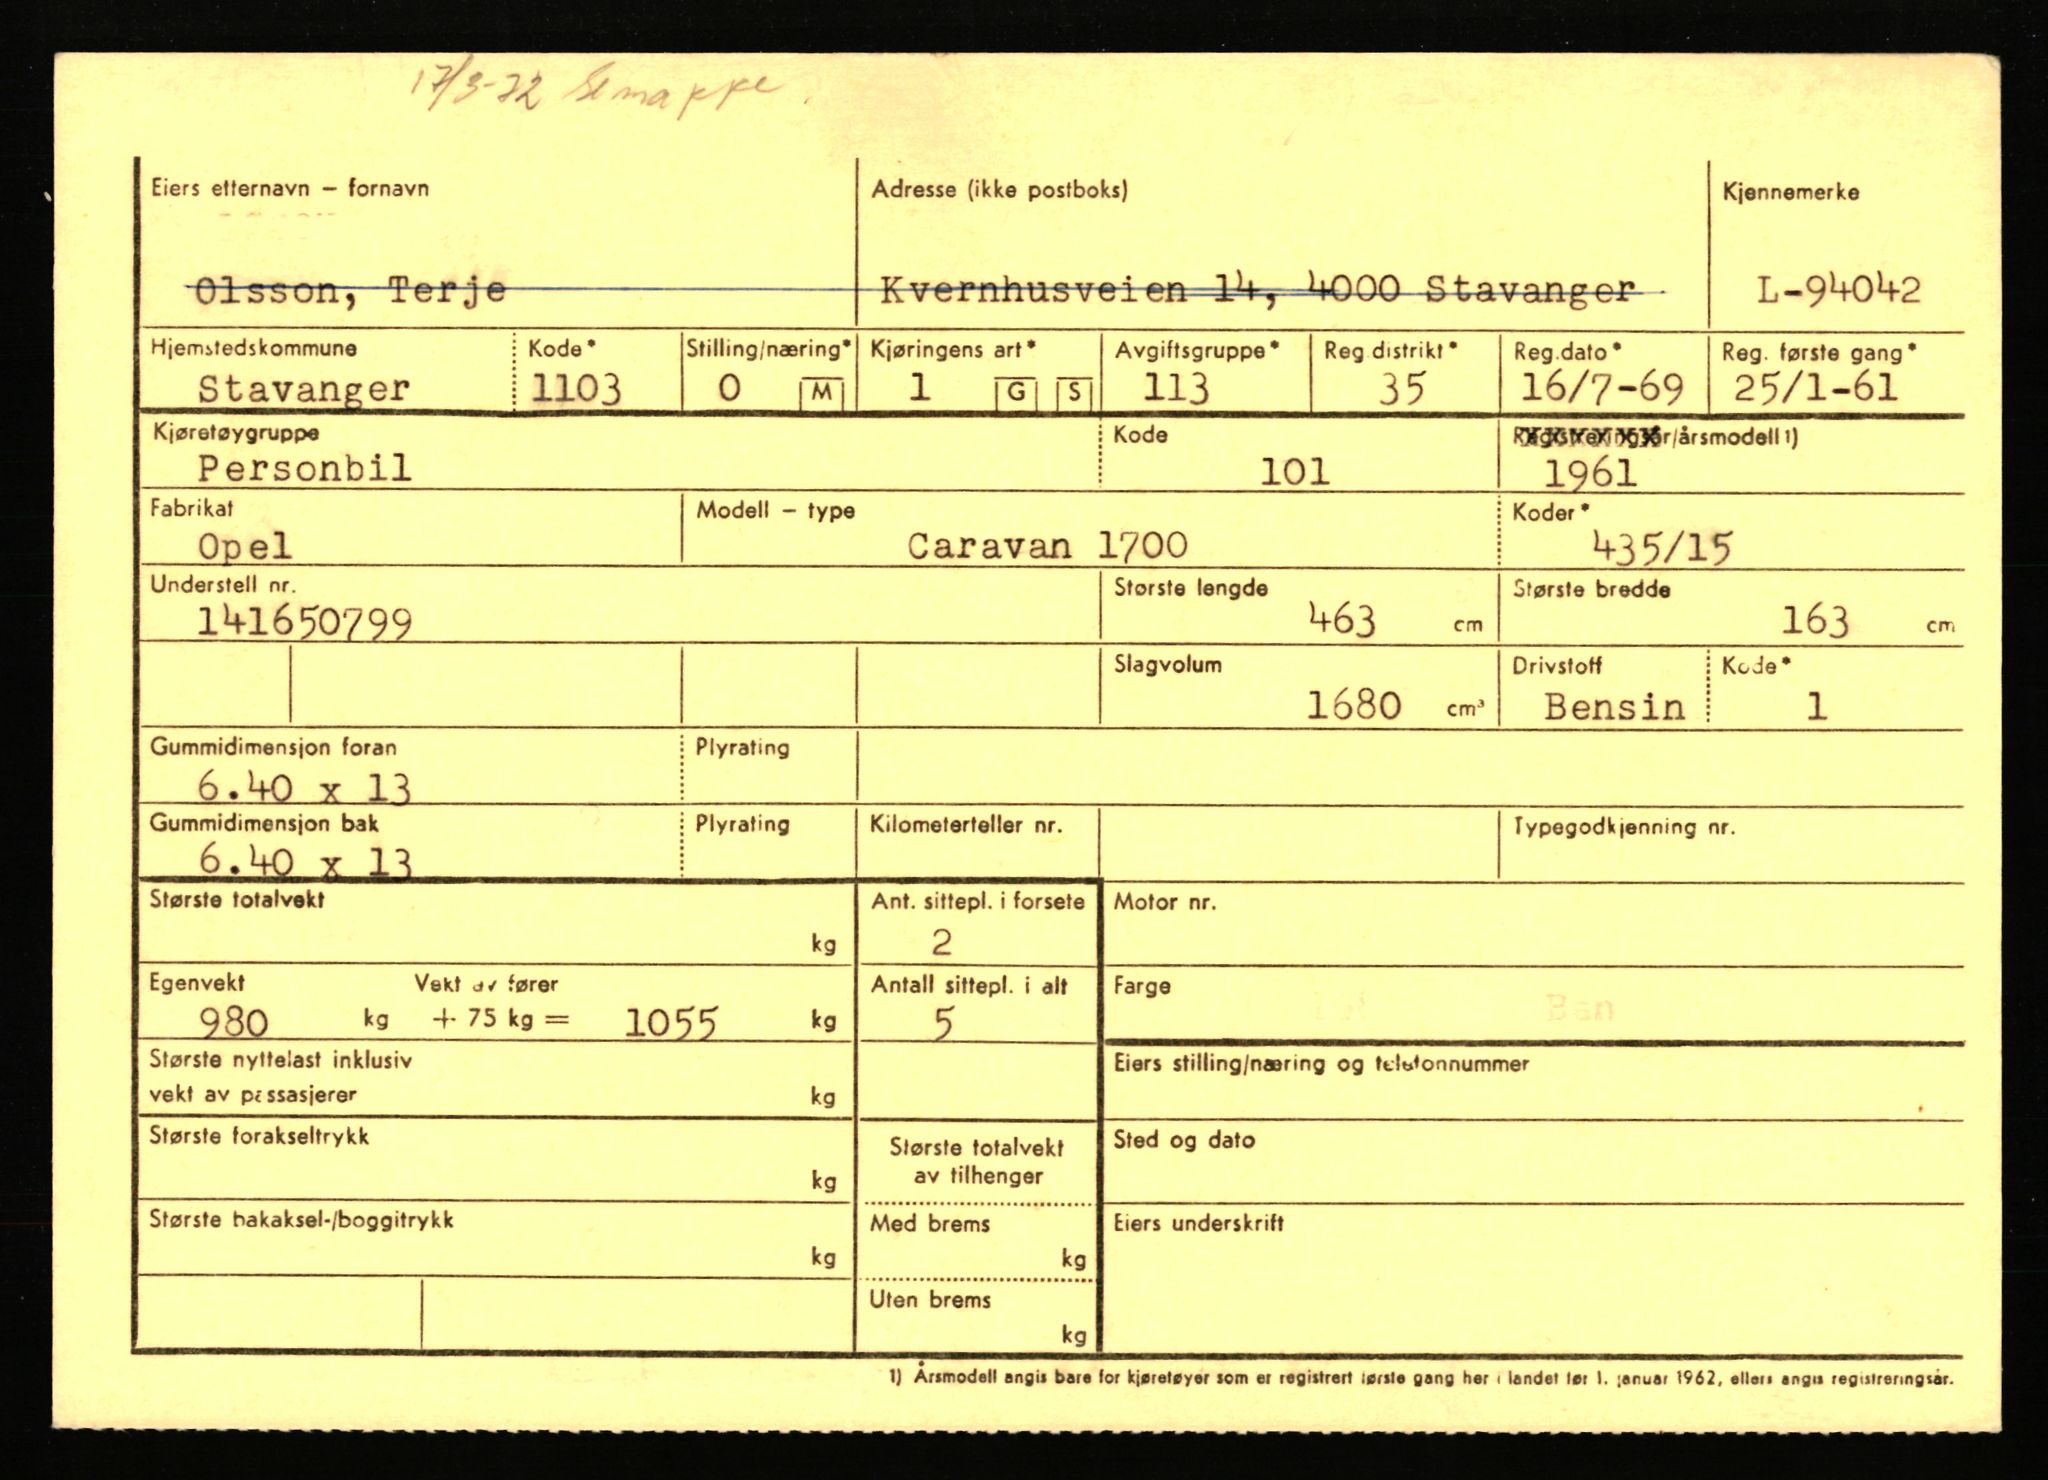 17/3-72 Se mappe.
Eiers etternavn – fornavn
Adresse (ikke postboks)
Kjennemerke
Olsson, Terje
Kvernhusveien 14, 4000 Stavanger
L-94042
Hjemstedskommune Kode* Stilling/næring* Kjøringens art* Avgiftsgruppe* Reg.distrikt* Reg.dato* Reg. første gang*
Stavanger 1103 0 M 1 G S 113 35 16/7-69 25/1-61
Kjøretøygruppe Kode Registreringsår/årsmodell 1)
Personbil 101 1961
Fabrikat Modell – type Koder*
Opel Caravan 1700 435/15
Understell nr. Største lengde Største bredde
141650799 463 cm 163 cm
Slagvolum Drivstoff Kode*
1680 cm³ Bensin 1
Gummidimensjon foran Plyrating
6.40 x 13
Gummidimensjon bak Plyrating Kilometerteller nr. Typegodkjenning nr.
6.40 x 13
Største totalvekt Ant. sittepl. i forsete Motor nr.
kg 2
Egenvekt Vekt av fører Antall sittepl. i alt Farge
980 kg + 75 kg = 1055 kg 5
Største nyttelast inklusiv Eiers stilling/næring og telefonnummer
vekt av passasjerer kg
Største forakseltrykk Største totalvekt Sted og dato
av tilhenger
kg
Største bakaksel-/boggitrykk Med brems Eiers underskrift
kg kg
Uten brems
kg
1) Årsmodell angis bare for kjøretøyer som er registrert første gang her i landet før 1. januar 1962, ellers angis registreringsår.